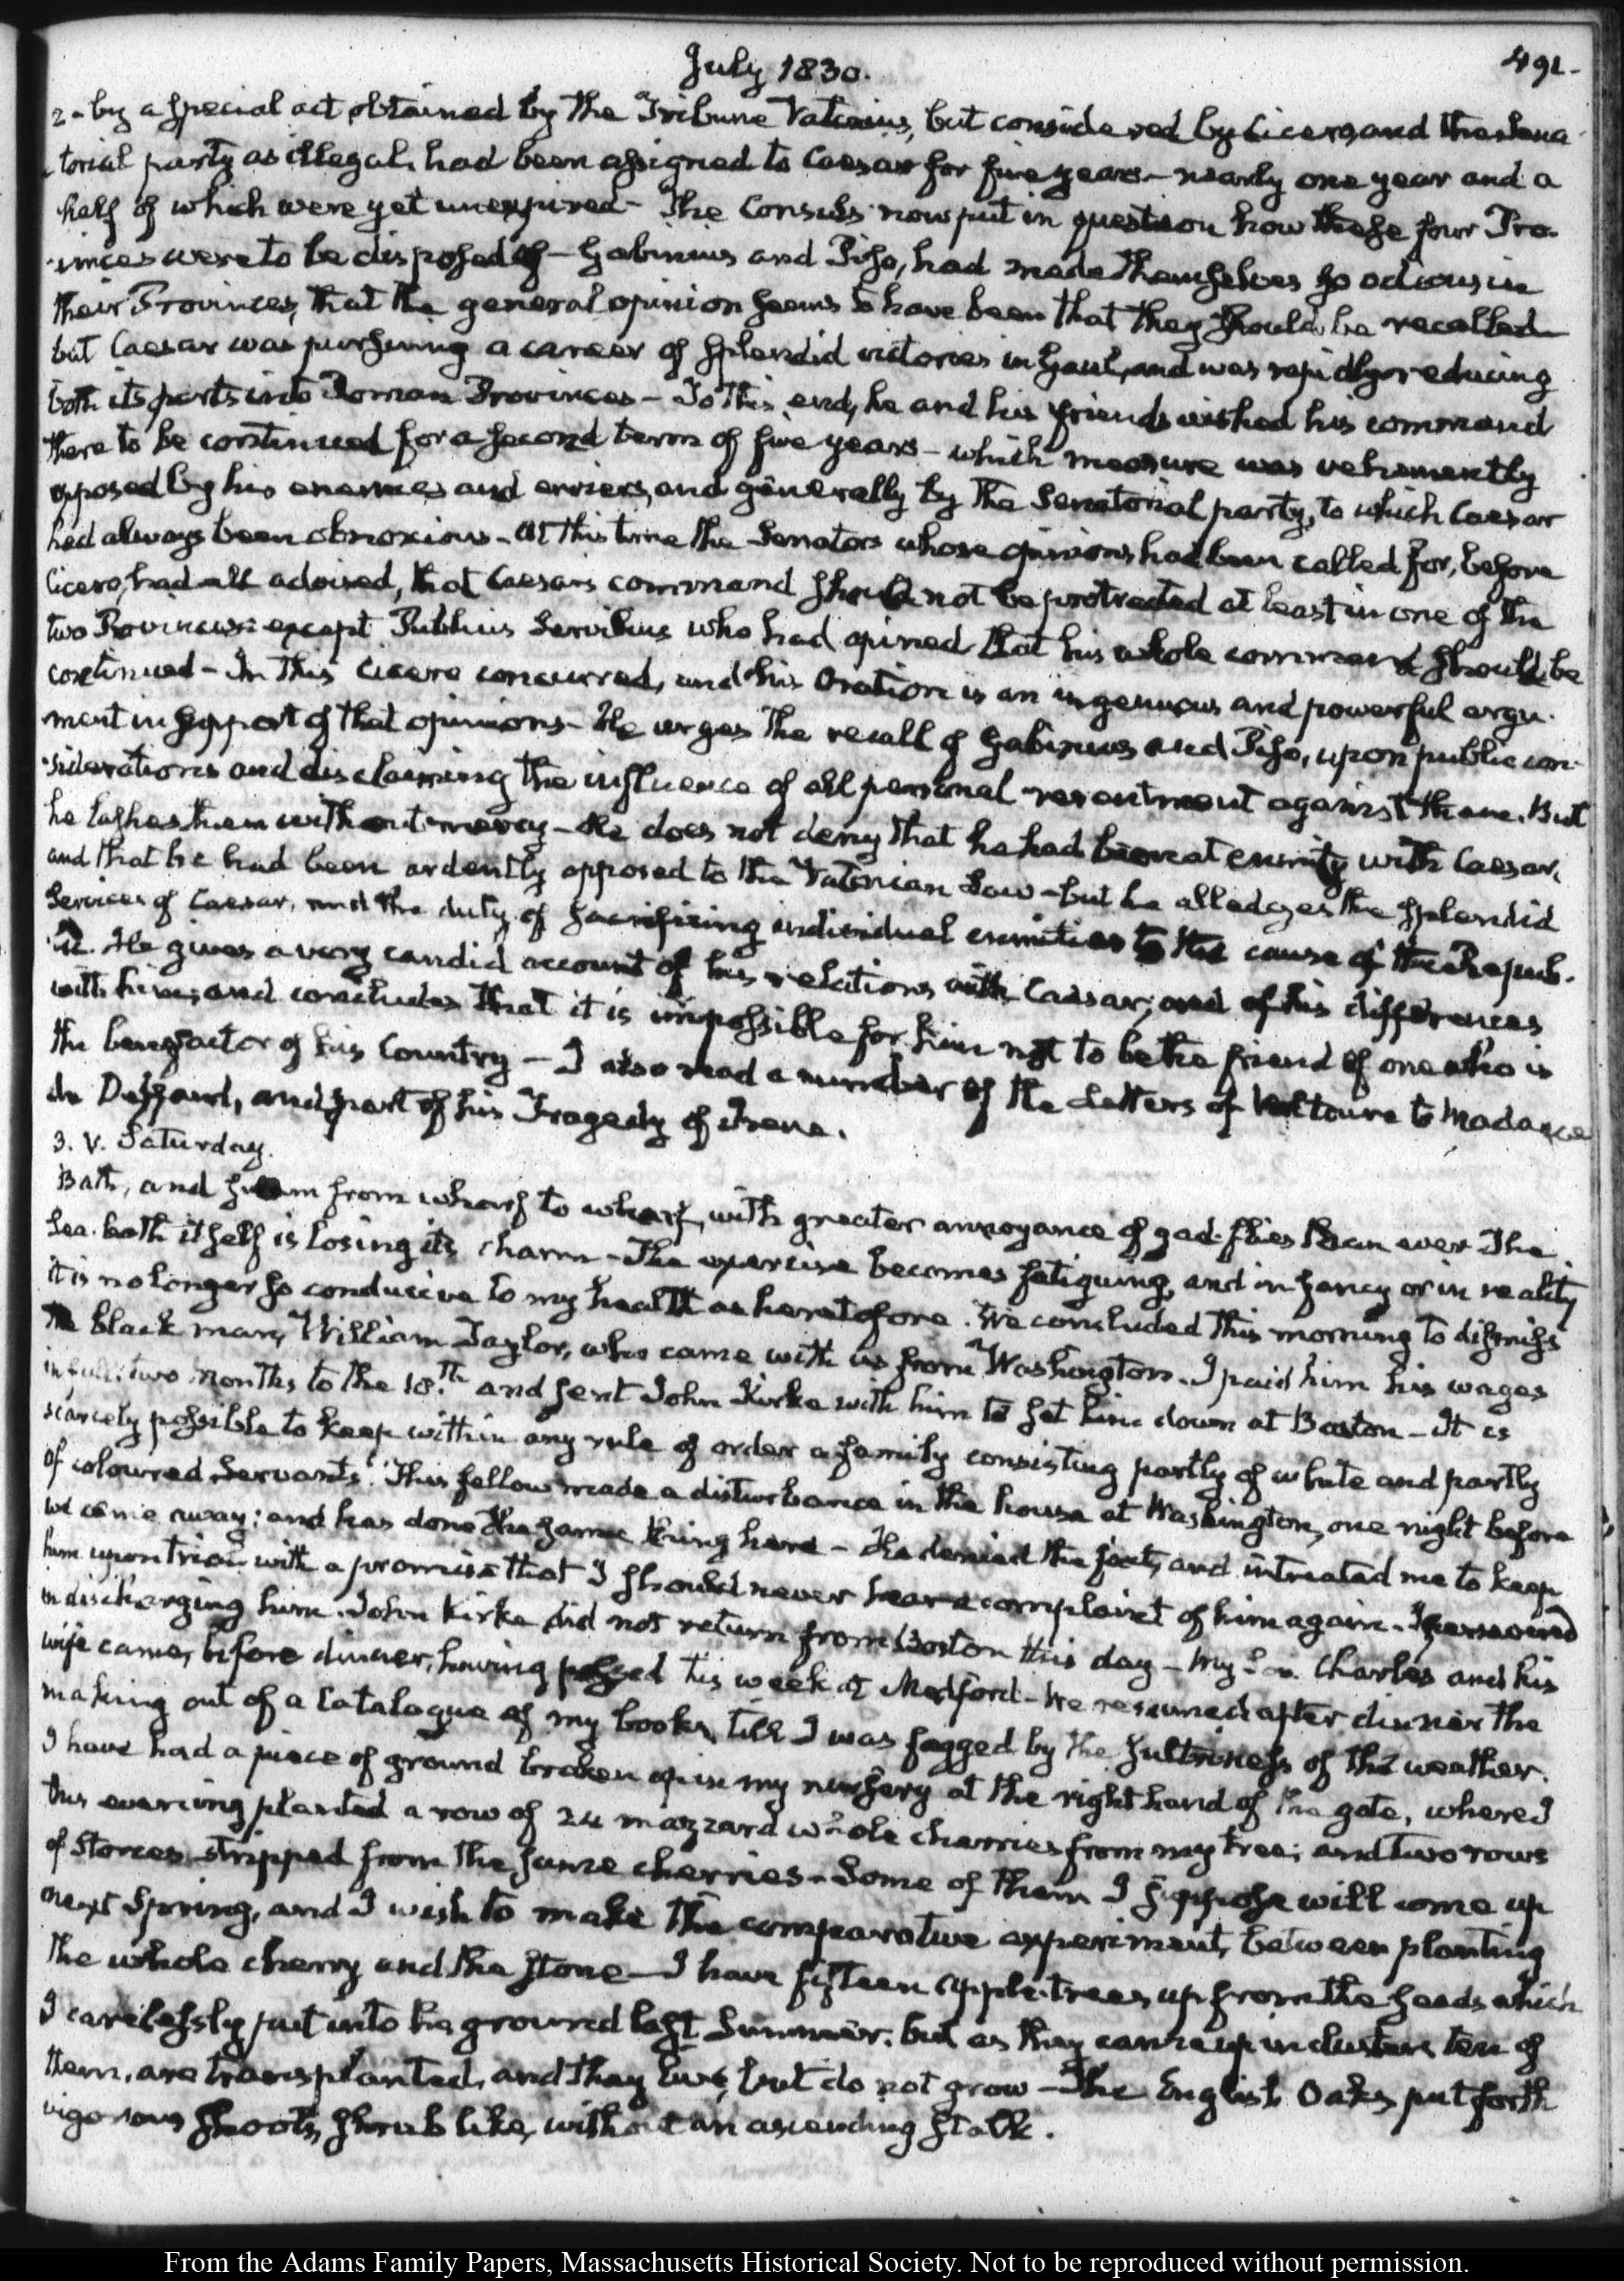 July 1830.
491.
2 - by a special act obtained by the Tribune Vatinius, but considered by Cicero, and the Sena-
torial party as illegal, had been assigned to Caesar for five years - nearly one year and a
half of which were yet unexpired - The Consuls now put in question how these four Pro-
vinces were to be disposed of - Gabinius and Piso, had made themselves so odious in
their Provinces, that the general opinion seems to have been that they should be recalled
but Caesar was pursuing a career of splendid victories in Gaul, and was rapidly reducing
both its parts into Roman Provinces - To this end, he and his friends wished his command
there to be continued for a second term of five years - which measure was vehemently
opposed by his enemies and enviers, and generally by the Senatorial party, to which Caesar
had always been obnoxious - At this time the Senators whose opinions had been called for, before
Cicero, had all advised, that Caesars command should not be protracted at least in one of the
two Provinces except Publius Servilius who had opined that his whole command should be
continued - In this Cicero concurred, and his Oration is an ingenuous and powerful argu-
ment in support of that opinion - He urges the recall of Gabinius and Piso, upon public con-
siderations and disclaiming the influence of all personal resentment against them. But
he lashes them without mercy - He does not deny that he had been at enmity with Caesar,
and that he had been ardently opposed to the Vatinian Law - but he alledges the splendid
Services of Caesar, and the duty of sacrificing individual enmities to the cause of the Repub-
lic. He gives a very candid account of his relations with Caesar, and of his differences
with him; and concludes that it is impossible for him not to be the friend of one who is
the benefactor of his Country - I also read a number of the Letters of Voltaire to Madame
du Deffand, and part of his Tragedy of Irene.
3. V. Saturday.
Bath, and swam from wharf to wharf, with greater annoyance of gad-flies than ever The
Sea-bath itself is losing its charm - The exercise becomes fatiguing, and in fancy or in reality
it is no longer so conducive to my health as heretofore. We concluded this morning to dismiss
the black man, William Taylor, who came with us from Washington. I paid him his wages
in full: two months to the 18.th and sent John Kirke with him to set him down at Boston - It is
scarcely possible to keep within any rule of order a family consisting partly of white and partly
of coloured Servants. This fellow made a disturbance in the house at Washington, one night before
we came away; and has done the same thing here - He denied the fact, and intreated me to keep
him upon trial with a promise that I should never hear a complaint of him again. I persevered
in discharging him. John Kirke did not return from Boston this day - My Son Charles and his
wife came, before dinner, having passed this week at Medford - We resumed after dinner the
making out of a Catalogue of my books, till I was fagged by the sultriness of the weather.
I have had a piece of ground broken up in my nursery at the right hand of the gate, where I
this evening planted a row of 24 mazzard whole cherries from my tree; and two rows
of Stones stripped from the same cherries - Some of them I suppose will come up
next Spring, and I wish to make the comparative experiment, between planting
the whole cherry and the stone - I have fifteen apple-trees up from the seeds which
I carelessly put into the ground last Summer. but as they came up in clusters, ten of
them, are transplanted, and they live, but do not grow - The English Oaks put forth
vigorous shoots, shrub like, without an ascending stalk.
From the Adams Family Papers, Massachusetts Historical Society. Not to be reproduced without permission.